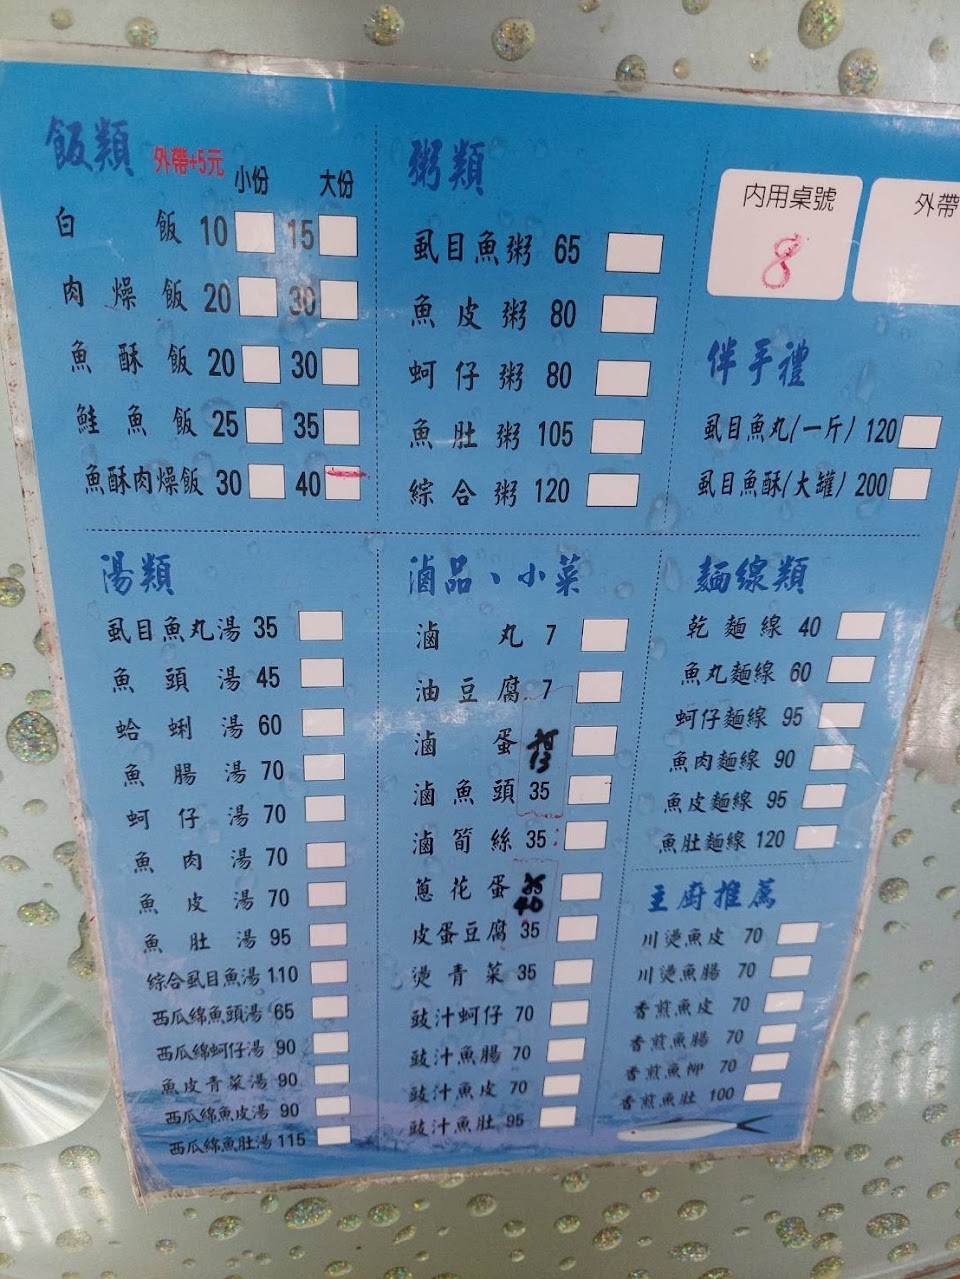 飯類 外帶+5元 小份 大份
白飯 10 15
肉燥飯 20 30
魚酥飯 20 30
鮭魚飯 25 35
魚酥肉燥飯 30 40
粥類
虱目魚粥 65
魚皮粥 80
蚵仔粥 80
魚肚粥 105
綜合粥 120
內用桌號
8
外帶
伴手禮
虱目魚丸(一斤) 120
虱目魚酥(大罐) 200
湯類
虱目魚丸湯 35
魚頭湯 45
蛤蜊湯 60
魚腸湯 70
蚵仔湯 70
魚肉湯 70
魚皮湯 70
魚肚湯 95
綜合虱目魚湯 110
西瓜綿魚頭湯 65
西瓜綿蚵仔湯 90
魚皮青菜湯 90
西瓜綿魚皮湯 90
西瓜綿魚肚湯 115
滷品、小菜
滷丸 7
油豆腐 7
滷蛋 13
滷魚頭 35
滷筍絲 35
蔥花蛋 40
皮蛋豆腐 35
燙青菜 35
豉汁蚵仔 70
豉汁魚腸 70
豉汁魚皮 70
豉汁魚肚 95
麵線類
乾麵線 40
魚丸麵線 60
蚵仔麵線 95
魚肉麵線 90
魚皮麵線 95
魚肚麵線 120
主廚推薦
川燙魚皮 70
川燙魚腸 70
香煎魚皮 70
香煎魚腸 70
香煎魚柳 70
香煎魚肚 100